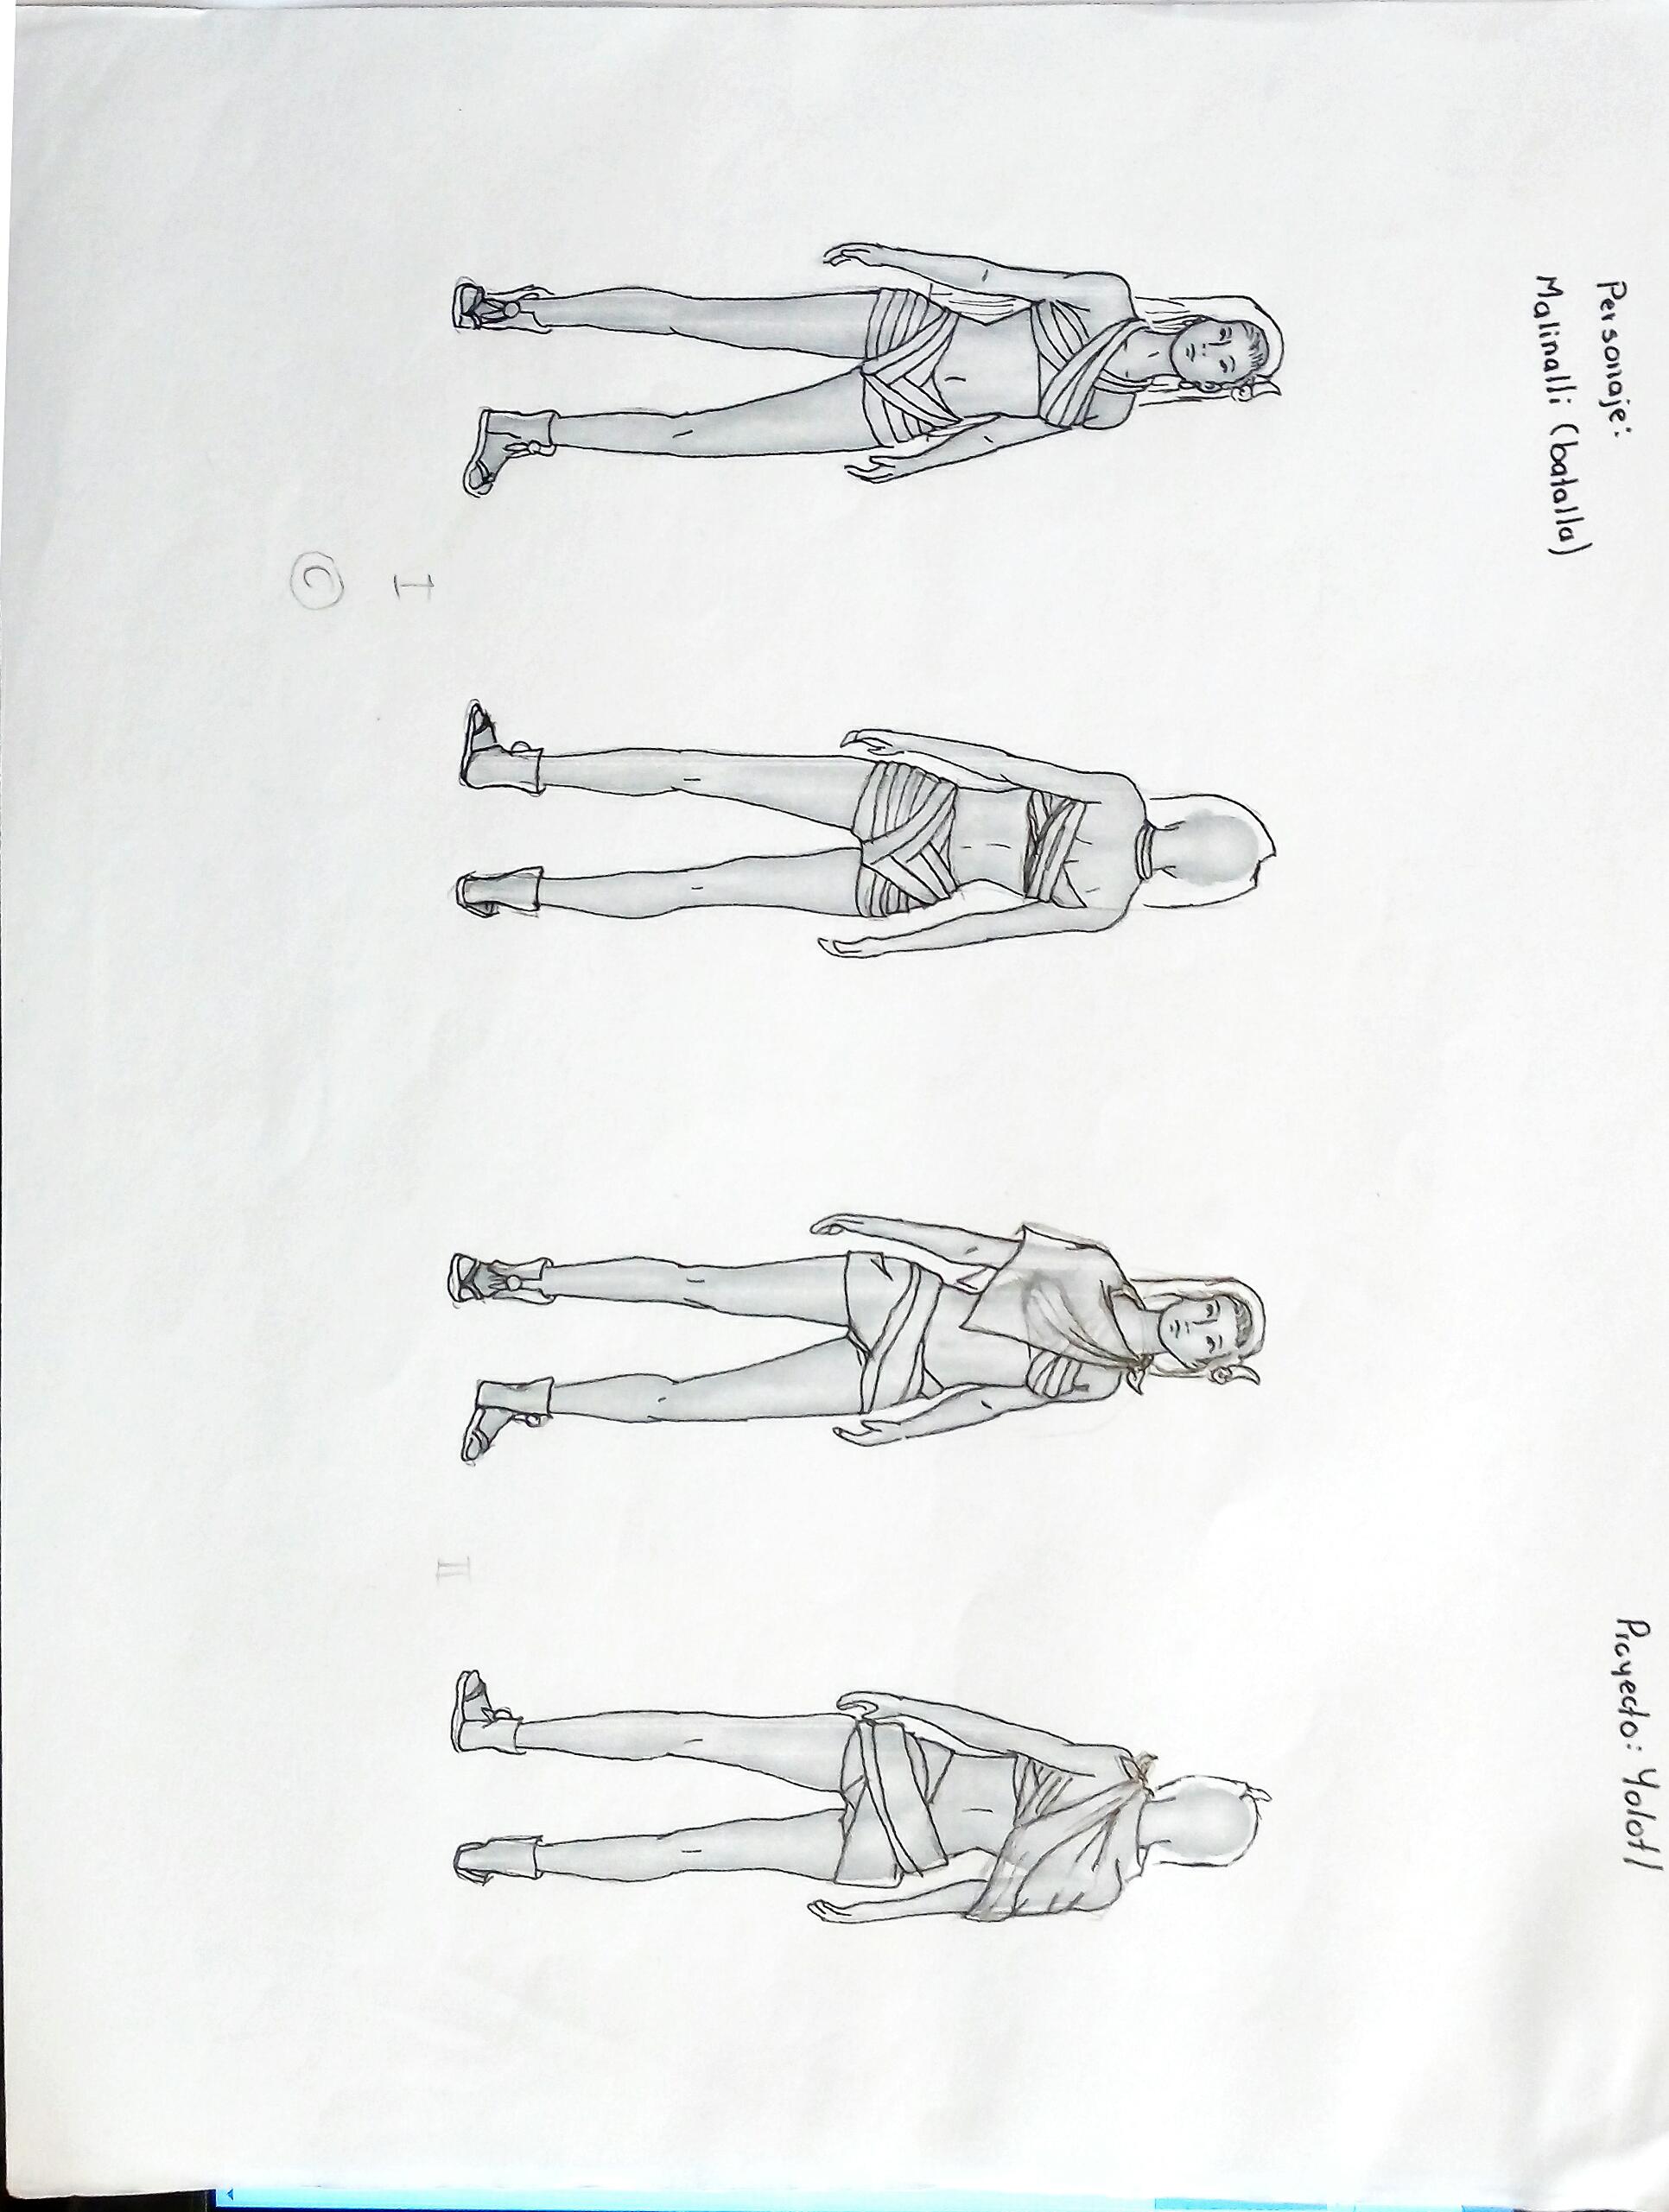 Personaje:
Malinalli (batalla)
Proyecto: Yolotl
I
II
©